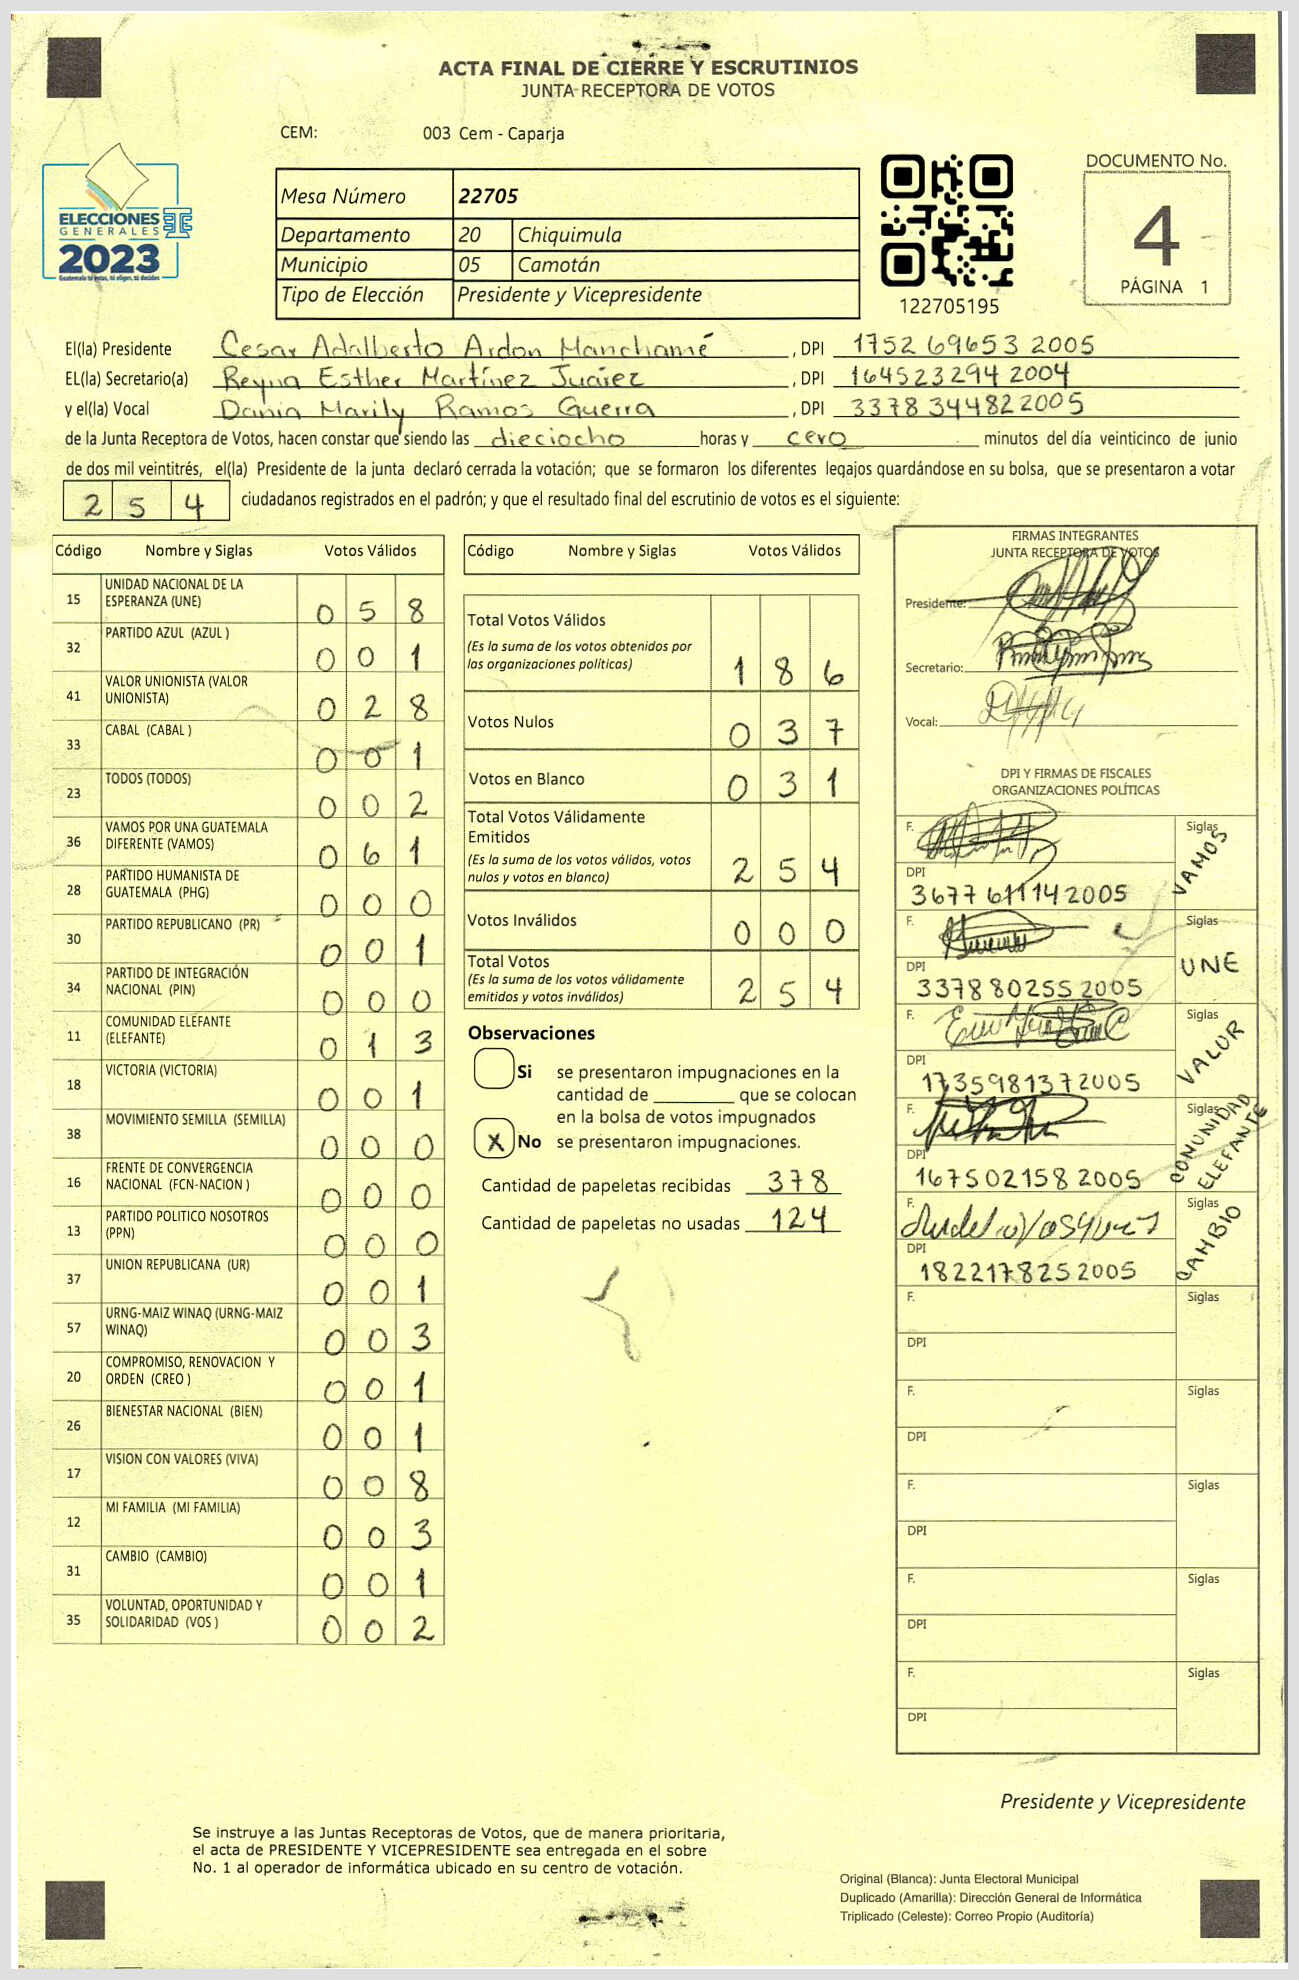 ACTA FINAL DE CIERRE Y ESCRUTINIOS
JUNTA RECEPTORA DE VOTOS
CEM: 003 Cem - Caparja
ELECCIONES
GENERALES
2023
Guatemala tú votas, tú eliges, tú decides
Mesa Número 22705
Departamento 20 Chiquimula
Municipio 05 Camotán
Tipo de Elección Presidente y Vicepresidente
122705195
DOCUMENTO No.
4
PÁGINA 1
El(la) Presidente Cesar Adalberto Ardon Manchamé , DPI 1752 69653 2005
EL(la) Secretario(a) Reyna Esther Martínez Juárez , DPI 164523294 2004
y el(la) Vocal Dania Marily Ramos Guerra , DPI 3378 344822005
de la Junta Receptora de Votos, hacen constar que siendo las dieciocho horas y cero minutos del día veinticinco de junio
de dos mil veintitrés, el(la) Presidente de la junta declaró cerrada la votación; que se formaron los diferentes legajos guardándose en su bolsa, que se presentaron a votar
2 5 4 ciudadanos registrados en el padrón; y que el resultado final del escrutinio de votos es el siguiente:
Código Nombre y Siglas Votos Válidos
15 UNIDAD NACIONAL DE LA ESPERANZA (UNE) 0 5 8
32 PARTIDO AZUL (AZUL ) 0 0 1
41 VALOR UNIONISTA (VALOR UNIONISTA) 0 2 8
33 CABAL (CABAL ) 0 0 1
23 TODOS (TODOS) 0 0 2
36 VAMOS POR UNA GUATEMALA DIFERENTE (VAMOS) 0 6 1
28 PARTIDO HUMANISTA DE GUATEMALA (PHG) 0 0 0
30 PARTIDO REPUBLICANO (PR) 0 0 1
34 PARTIDO DE INTEGRACIÓN NACIONAL (PIN) 0 0 0
11 COMUNIDAD ELEFANTE (ELEFANTE) 0 1 3
18 VICTORIA (VICTORIA) 0 0 1
38 MOVIMIENTO SEMILLA (SEMILLA) 0 0 0
16 FRENTE DE CONVERGENCIA NACIONAL (FCN-NACION ) 0 0 0
13 PARTIDO POLITICO NOSOTROS (PPN) 0 0 0
37 UNION REPUBLICANA (UR) 0 0 1
57 URNG-MAIZ WINAQ (URNG-MAIZ WINAQ) 0 0 3
20 COMPROMISO, RENOVACION Y ORDEN (CREO ) 0 0 1
26 BIENESTAR NACIONAL (BIEN) 0 0 1
17 VISION CON VALORES (VIVA) 0 0 8
12 MI FAMILIA (MI FAMILIA) 0 0 3
31 CAMBIO (CAMBIO) 0 0 1
35 VOLUNTAD, OPORTUNIDAD Y SOLIDARIDAD (VOS ) 0 0 2
Código Nombre y Siglas Votos Válidos
Total Votos Válidos
(Es la suma de los votos obtenidos por
las organizaciones políticas) 1 8 6
Votos Nulos 0 3 7
Votos en Blanco 0 3 1
Total Votos Válidamente
Emitidos
(Es la suma de los votos válidos, votos
nulos y votos en blanco) 2 5 4
Votos Inválidos 0 0 0
Total Votos
(Es la suma de los votos válidamente
emitidos y votos inválidos) 2 5 4
Observaciones
Si se presentaron impugnaciones en la
cantidad de ________ que se colocan
en la bolsa de votos impugnados
X No se presentaron impugnaciones.
Cantidad de papeletas recibidas 378
Cantidad de papeletas no usadas 124
FIRMAS INTEGRANTES
JUNTA RECEPTORA DE VOTOS
Presidente:
Secretario:
Vocal:
DPI Y FIRMAS DE FISCALES
ORGANIZACIONES POLÍTICAS
F. Siglas VAMOS
DPI 3677 611142005
F. Siglas UNE
DPI 3378 80255 2005
F. Siglas VALOR
DPI 1735981372005
F. Siglas COMUNIDAD ELEFANTE
DPI 167502158 2005
F. Siglas CAMBIO
DPI 1822178252005
F. Siglas
DPI
F. Siglas
DPI
F. Siglas
DPI
F. Siglas
DPI
F. Siglas
DPI
Presidente y Vicepresidente
Se instruye a las Juntas Receptoras de Votos, que de manera prioritaria,
el acta de PRESIDENTE Y VICEPRESIDENTE sea entregada en el sobre
No. 1 al operador de informática ubicado en su centro de votación.
Original (Blanca): Junta Electoral Municipal
Duplicado (Amarilla): Dirección General de Informática
Triplicado (Celeste): Correo Propio (Auditoría)